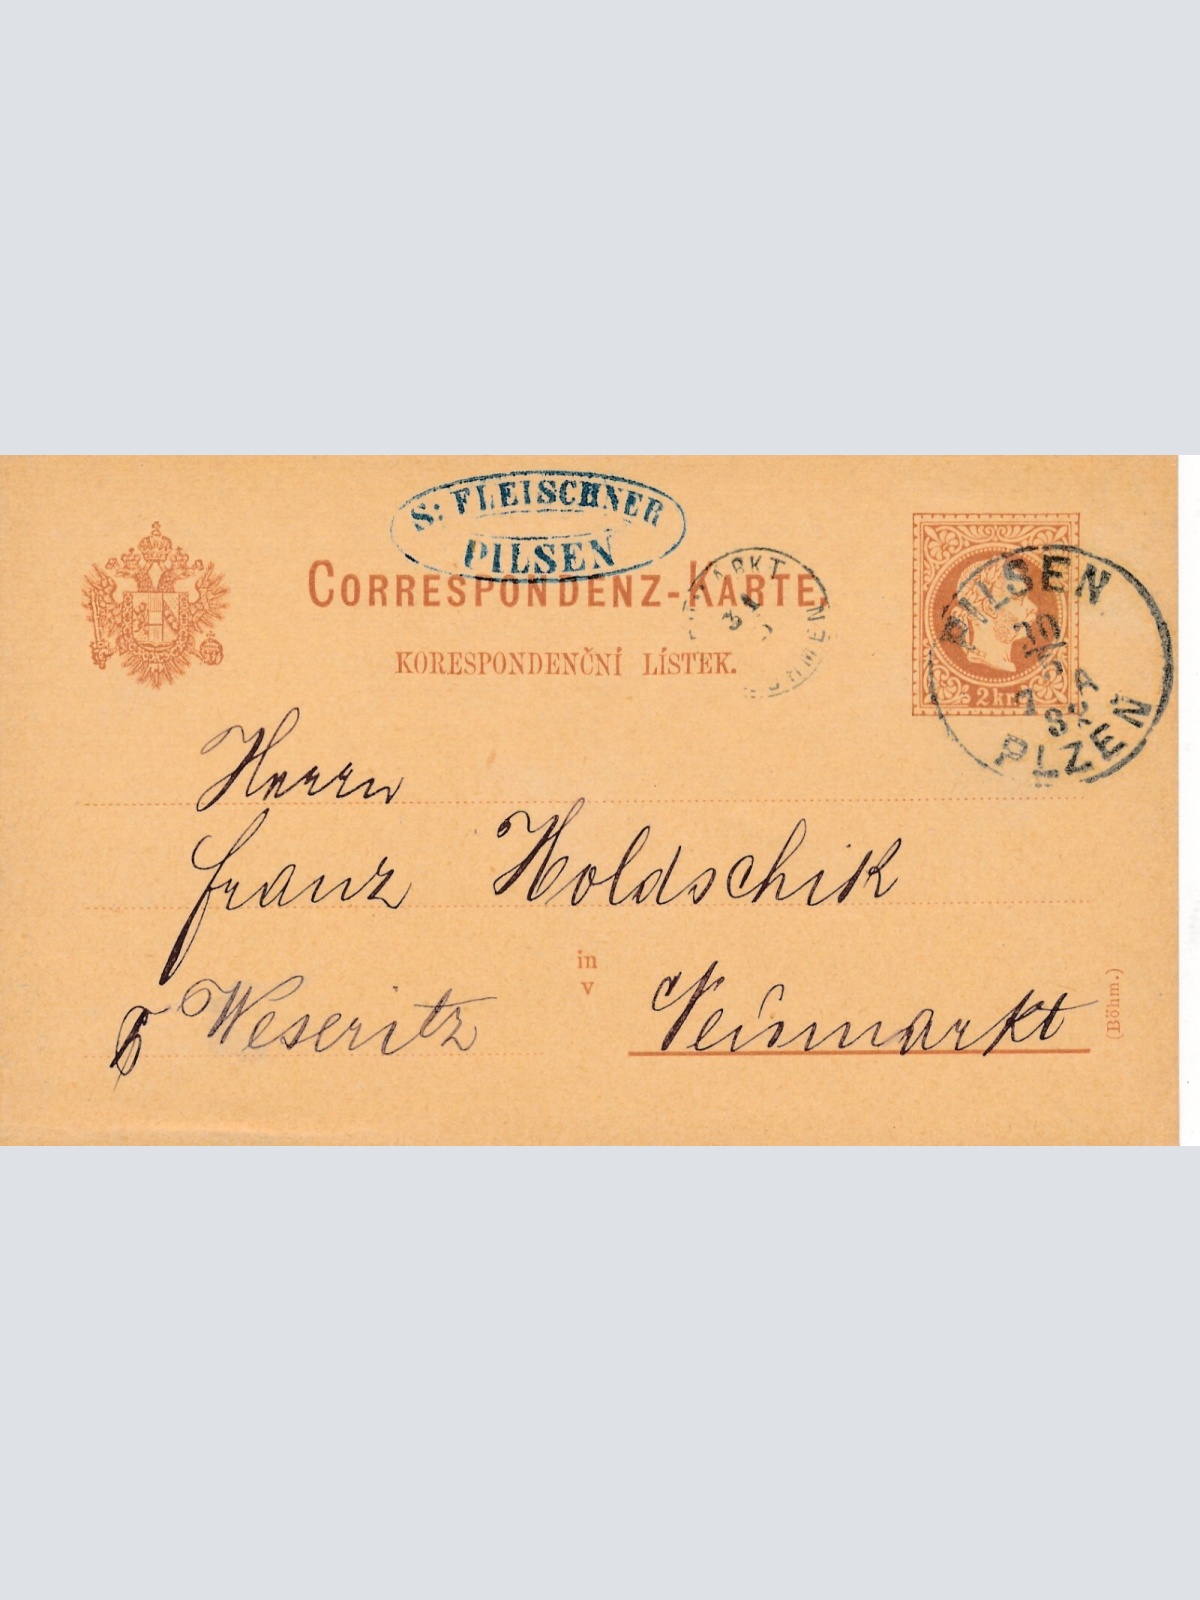 S: FLEISCHNER
PILSEN
CORRESPONDENZ-KARTE.
KORESPONDENČNÍ LÍSTEK.
31
PILSEN
30
5
7 A
PLZEN
2 kr.
Herrn
Franz Holdschik
in
v
Weseritz Neumarkt
(Böhm.)